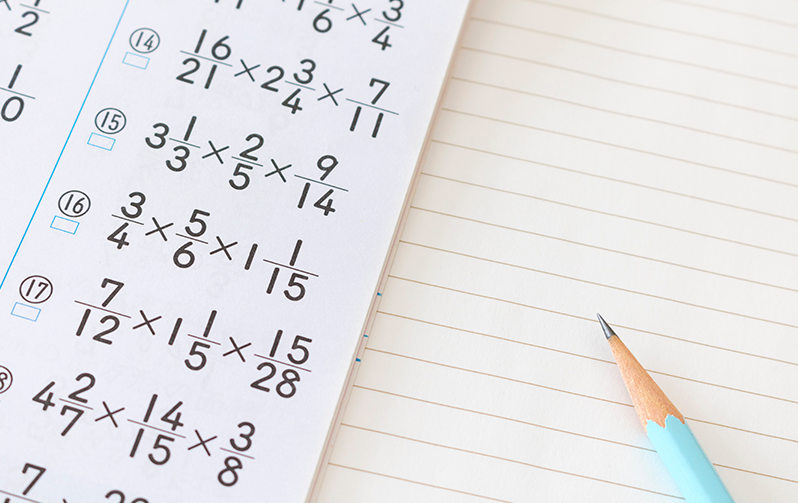 1/6 × 3/4
⑭ 16/21 × 2 3/4 × 7/11
⑮ 3 1/3 × 2/5 × 9/14
⑯ 3/4 × 5/6 × 1 1/15
⑰ 7/12 × 1 1/5 × 15/28
4 2/7 × 14/15 × 3/8